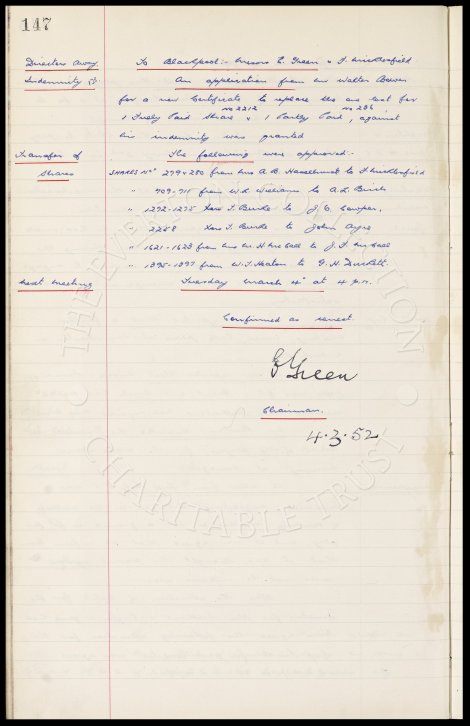 147
Directors Away To Blackpool:- Messrs E. Green & F. Micklesfield
Indemnity An application from Mr Walter Bower
for a new Certificate to replace the one lost for
No 2212 No 286
1 Fully Paid Share & 1 Partly Paid, against
his indemnity was granted
Transfer of The following were approved:-
Shares SHARES Nos 279 & 280 from Mrs A. B. Haselhurst to F. Micklesfield
" 709-711 from W. R. Williams to A. L. Birch
" 1272-1275 T. Burke to J. C. Cowper.
" 2258 T. Burke to John Ayre
" 1621-1623 from Mrs M. H. to J. F.
" 1395-1397 from W. J. Heaton to G. H. Duckett.
Next Meeting Tuesday March 4th at 4 p.m.
Confirmed as correct.
E Green
Chairman.
4.3.52
THE EVERTON COLLECTION
CHARITABLE TRUST